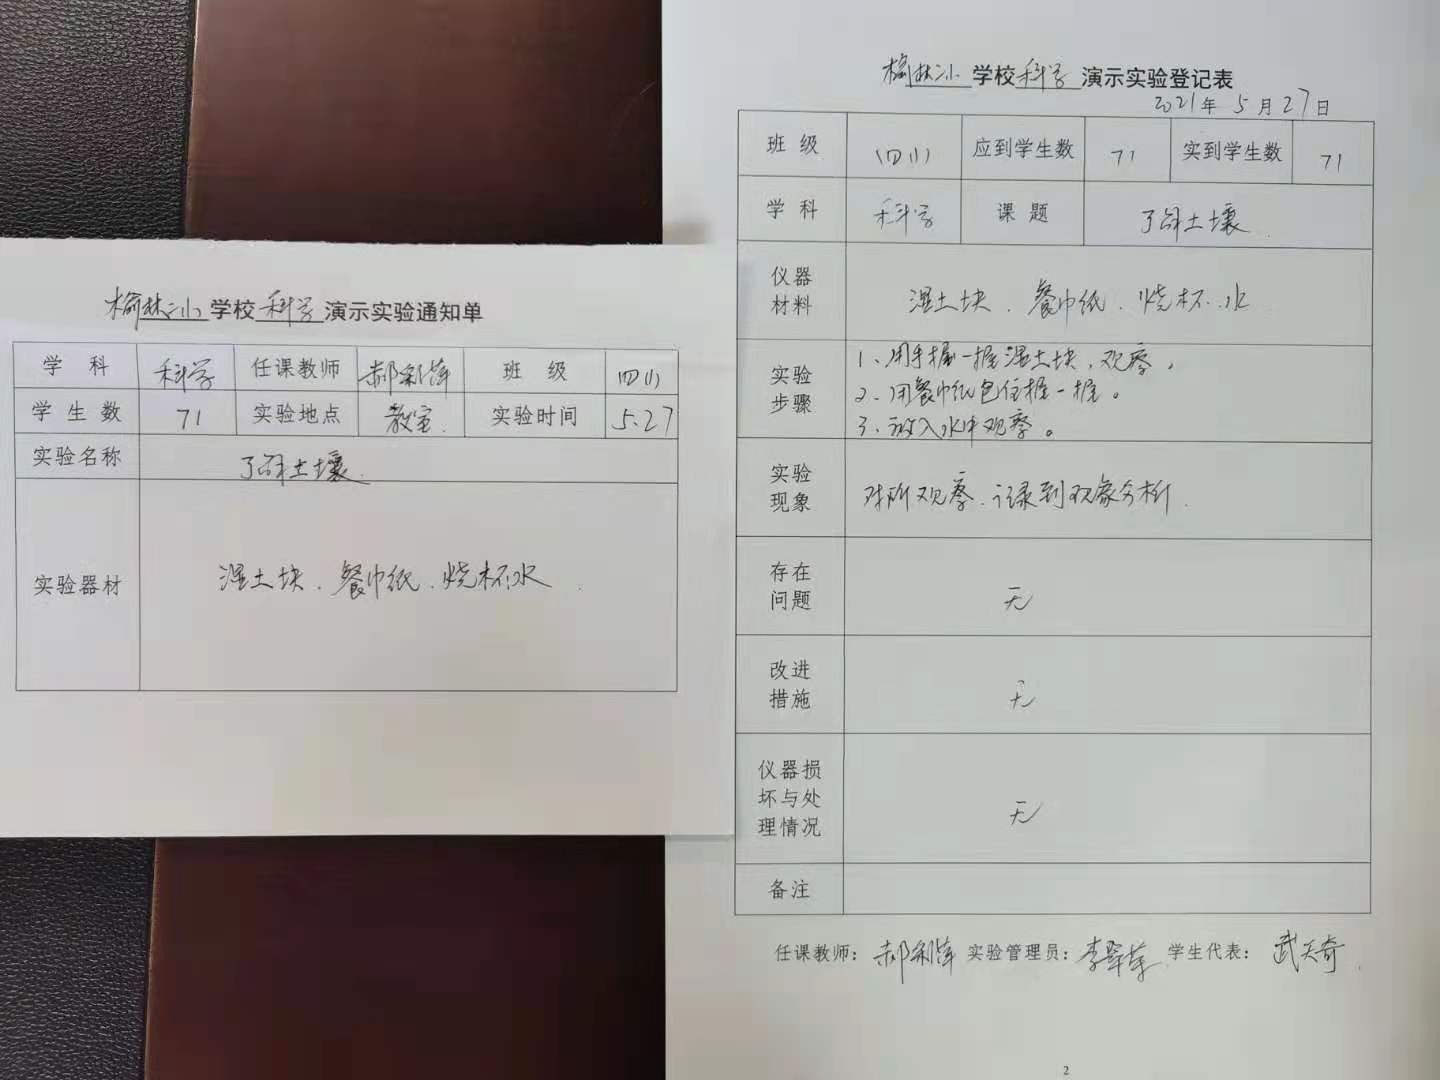 榆林二小学校科学演示实验通知单
学科 科学 任课教师 郝利萍 班级 四(1)
学生数 71 实验地点 教室. 实验时间 5.27
实验名称 了解土壤.
实验器材 湿土块、餐巾纸、烧杯水.
榆林二小学校科学演示实验登记表
2021年5月27日
班级 四(1) 应到学生数 71 实到学生数 71
学科 科学 课题 了解土壤.
仪器材料 湿土块、餐巾纸、烧杯、水
实验步骤 1、用手握一握湿土块,观察,
2、用餐巾纸包住握一握。
3、放入水中观察。
实验现象 对所观察、记录到现象分析.
存在问题 无
改进措施 无
仪器损坏与处理情况 无
备注
任课教师: 郝利萍 实验管理员: 李 学生代表: 武天奇.
2